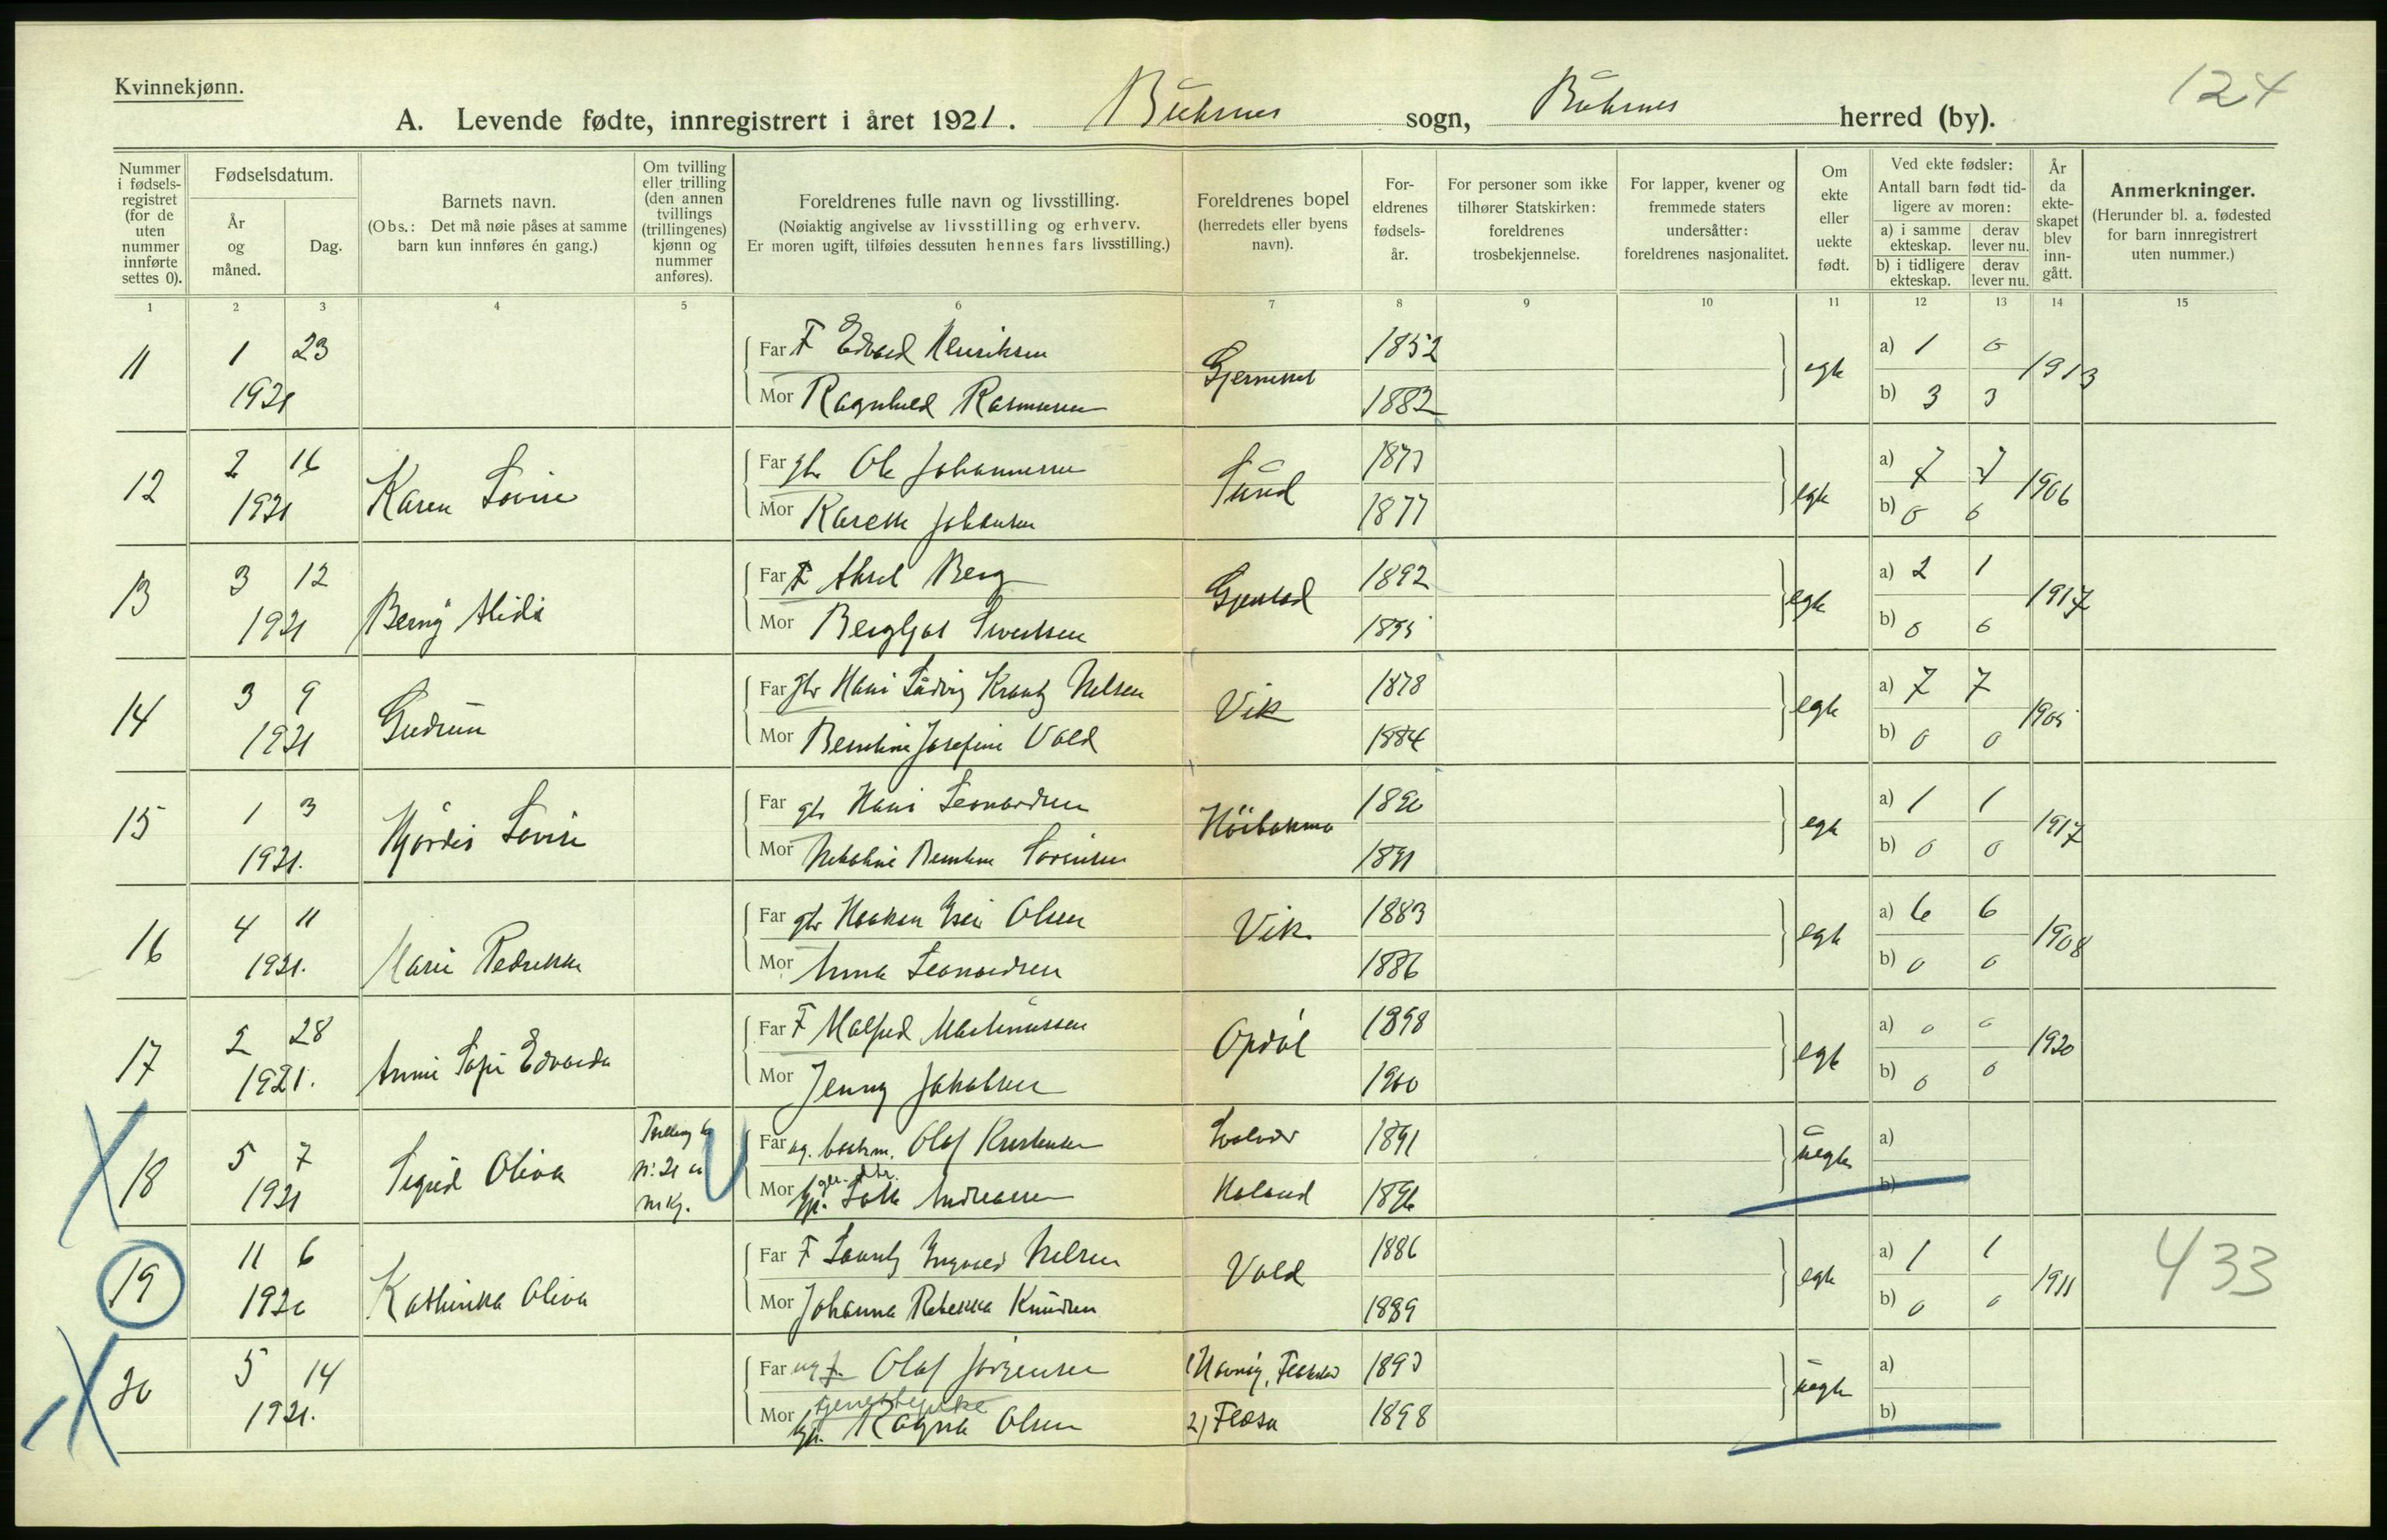 Kvinnekjønn.
124
A. Levende fødte, innregistrert i året 1921. Buksnes sogn, Buksnes herred (by).
Nummer i fødsels-registret (for de uten nummer innførte settes 0).
Fødselsdatum.
År og måned.
Dag.
Barnets navn.
(Obs.: Det må nøie påses at samme barn kun innføres én gang.)
Om tvilling eller trilling (den annen tvillings (trillingenes) kjønn og nummer anføres).
Foreldrenes fulle navn og livsstilling.
(Nøiaktig angivelse av livsstilling og erhverv.
Er moren ugift, tilføies dessuten hennes fars livsstilling.)
Foreldrenes bopel
(herredets eller byens navn).
For-eldrenes fødsels-år.
For personer som ikke tilhører Statskirken: foreldrenes trosbekjennelse.
For lapper, kvener og fremmede staters undersåtter: foreldrenes nasjonalitet.
Om ekte eller uekte født.
Ved ekte fødsler:
Antall barn født tid-ligere av moren:
a) i samme ekteskap.
derav lever nu.
b) i tidligere ekteskap.
derav lever nu.
År da ekte-skapet blev inn-gått.
Anmerkninger.
(Herunder bl. a. fødested for barn innregistrert uten nummer.)
1 2 3 4 5 6 7 8 9 10 11 12 13 14 15
11 1 23 Far F Edvard Henriksen 1852 a) 1 0
1921 Mor Ragnhild Rasmussen 1882 egte b) 3 3 1913
12 2 16 Karen Lovise Far gbr Ole Johannessen Sund 1873 a) 7 7
1921 Mor Karelle Johansen 1877 egte b) 0 0 1906
13 3 12 Berny Alida Far F Aksel Berg Gjerstad 1892 a) 2 1
1921 Mor Bergljot Sivertsen 1895 egte b) 0 0 1917
14 3 9 Gudrun Far gbr Hans Ludvig Krantz Nilsen Vik 1878 a) 7 7
1921 Mor Berntine Josefine Vold 1884 egte b) 0 0 1905
15 1 3 Hjördis Lovise Far gbr Hans Leonardsen 1890 a) 1 1
1921. Mor Nikoline Berntine Sörensen 1891 egte b) 0 0 1917
16 4 11 Marie Pedrikke Far gbr Haakon Olsen Vik 1883 a) 6 6
1921. Mor Anna Leonardsen 1886 egte b) 0 0 1908
17 2 28 Anni Sofie Edvarda Far F Halfred Martinussen Opdöl 1898 a) 0 0
1921. Mor Jenny Jakobsen 1900 egte b) 0 0 1920
18 5 7 Sigrid Oliva Tvilling til nr. 21 mkj. Far ug. Olaf Kristensen Svolvær 1891 a)
1921 Mor Andreassen Holand 1896 uegte b)
19 11 6 Kathinka Oliva Far F Lauritz Ingvald Nilsen Vold 1886 a) 1 1 433
1920 Mor Johanna Rebekka Knudsen 1889 egte b) 0 0 1911
20 5 14 Far ug f. Olaf Jörgensen 1893 a)
1921. Mor tjenestepike Ragna Olsen 2) Flæsa 1898 uegte b)